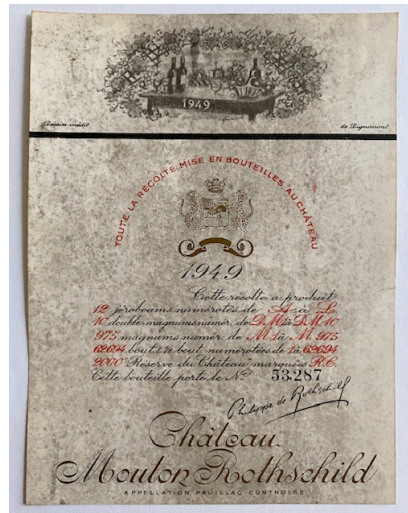 1949
Dessin inédit de Dignimont
TOUTE LA RÉCOLTE MISE EN BOUTEILLES AU CHÂTEAU
1949
Cette récolte a produit
12 jéroboams numérotés de A à L
10 double magnums numér. de D.M.1 à D.M.10
975 magnums numér. de M.1 à M.975
62694 bout. & ½ bout. numérotées de 1 à 62694
2000 "Réserve du Château" marquées R.C.
Cette bouteille porte le No 53.287
Philippe de Rothschild
Château
Mouton Rothschild
APPELLATION PAUILLAC CONTROLÉE